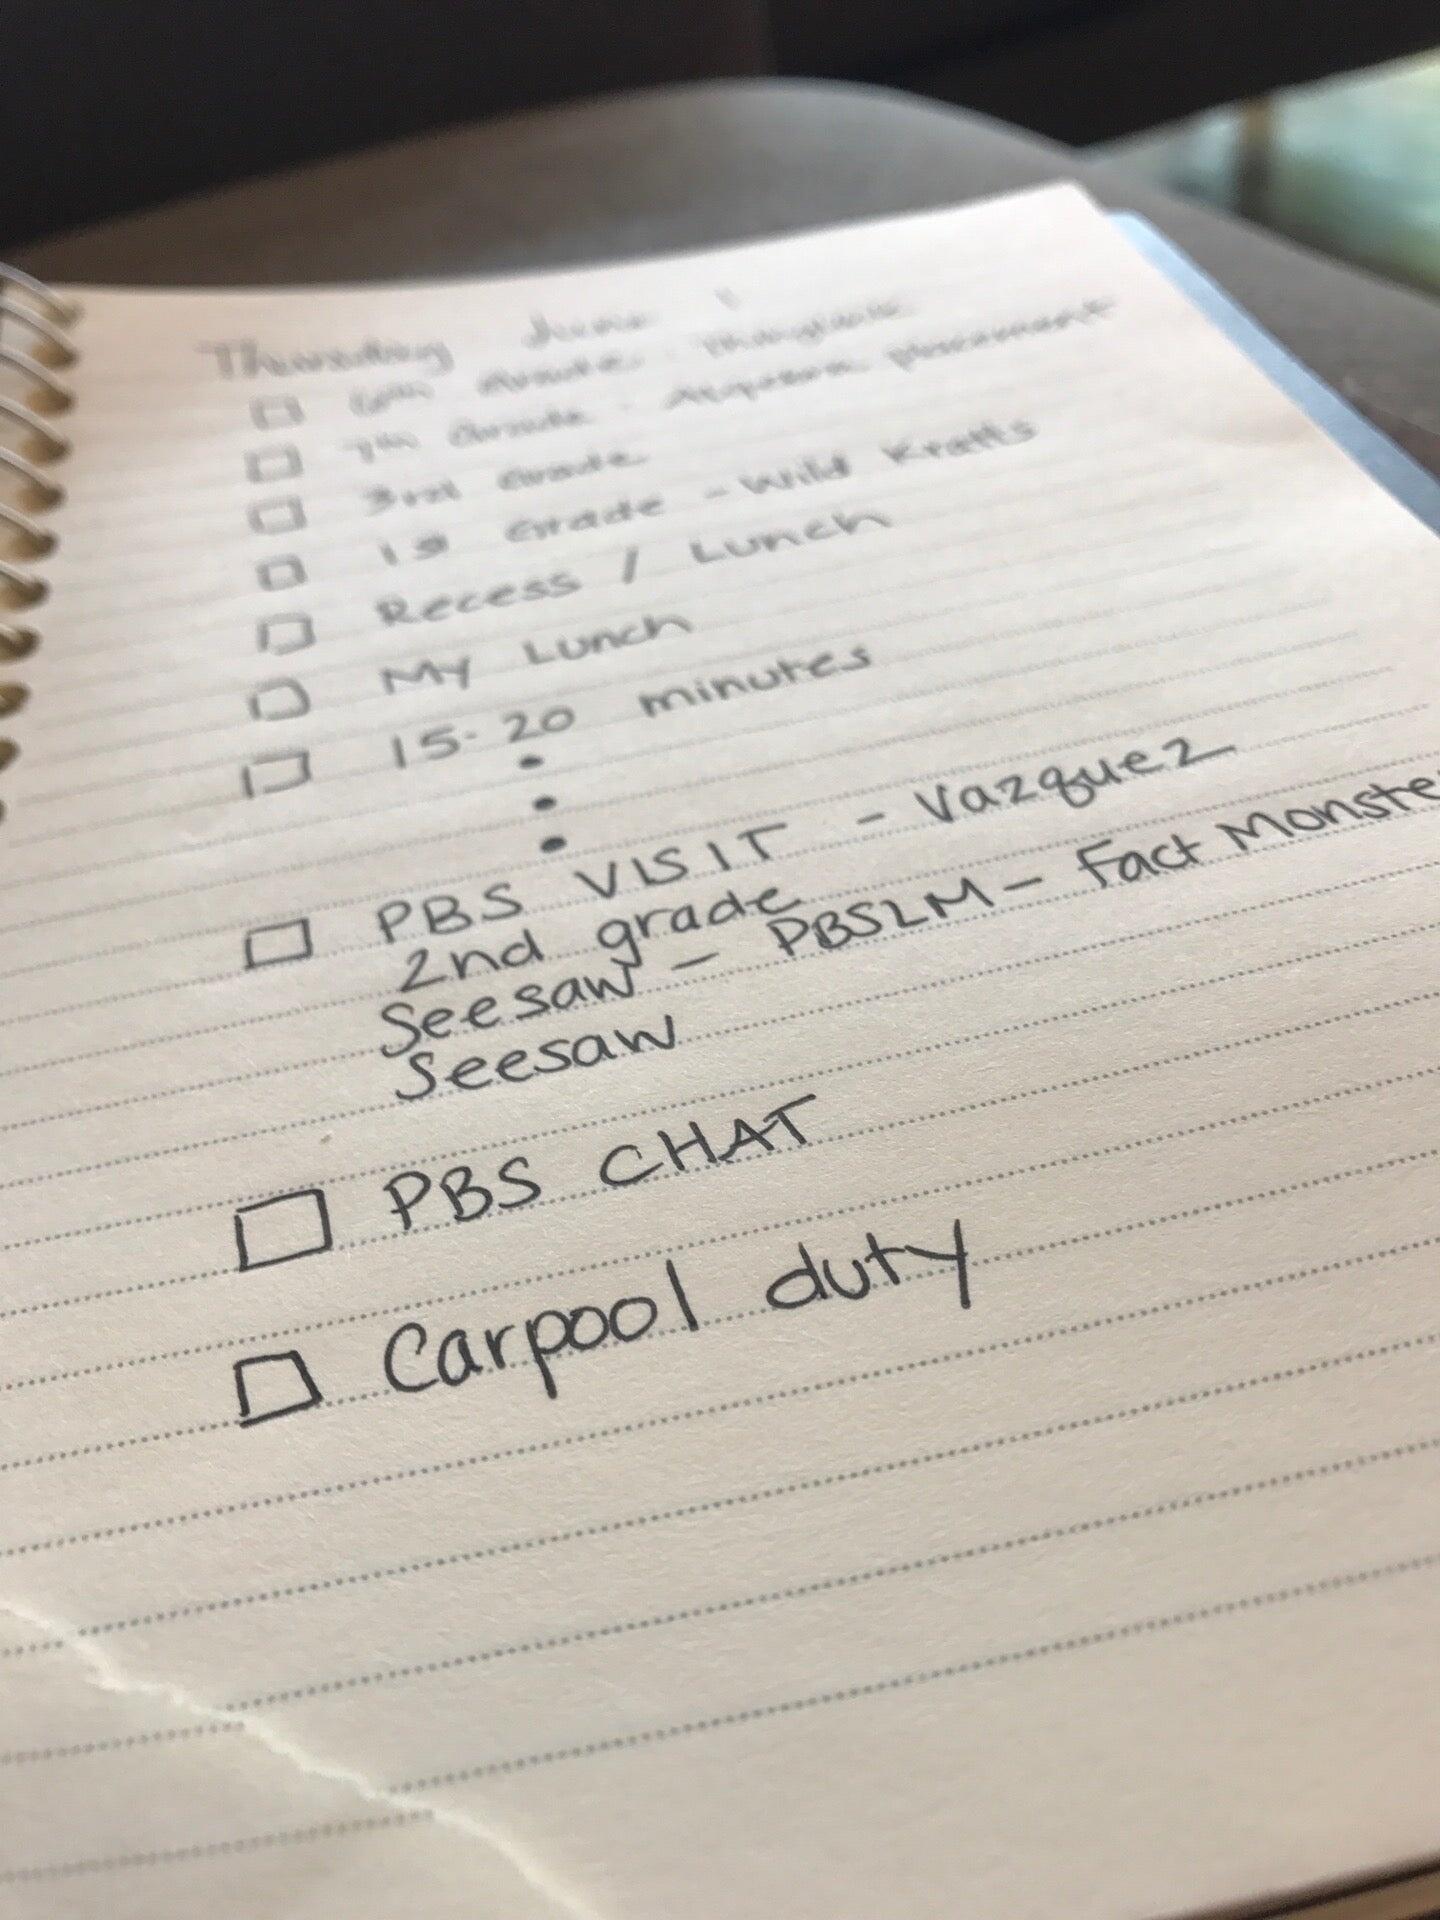 Thursday June 1
6th Grade -
7th Grade - placement
3rd Grade
1st Grade - Wild Kratts
Recess / Lunch
My Lunch
15-20 minutes
PBS VISIT - Vazquez
2nd grade
Seesaw - PBSLM - Fact Monste
Seesaw
PBS CHAT
Carpool duty